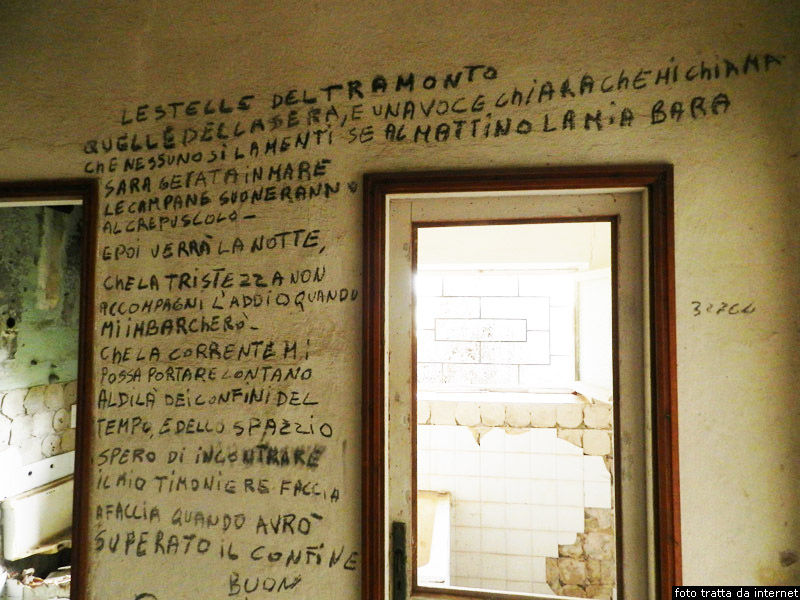 LE STELLE DEL TRAMONTO
QUELLE DELLA SERA, E UNA VOCE CHIARA CHE MI CHIAMA
CHE NESSUNO SI LAMENTI SE AL MATTINO LA MIA BARA
SARA GETATA IN MARE
LE CAMPANE SUONERANNO
AL CREPUSCOLO -
E POI VERRÀ LA NOTTE,
CHE LA TRISTEZZA NON
ACCOMPAGNI L'ADDIO QUANDO
MI IMBARCHERÒ -
CHE LA CORRENTE MI
POSSA PORTARE LONTANO
ALDILÀ DEI CONFINI DEL
TEMPO, E DELLO SPAZZIO
SPERO DI INCONTRARE
IL MIO TIMONIERE FACCIA
A FACCIA QUANDO AVRÒ
SUPERATO IL CONFINE
BUON
foto tratta da internet